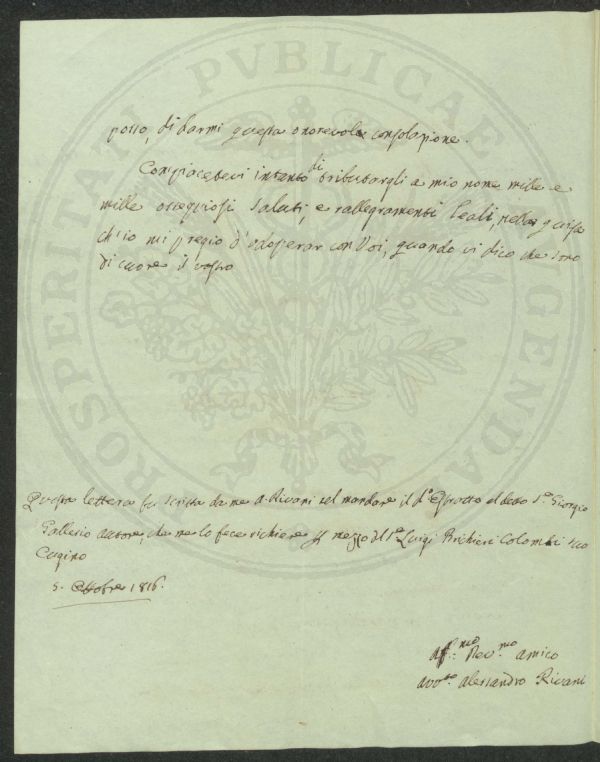 PROSPERITATI PVBLICAE AVGENDAE
posso, di darmi questa onorevole consolazione.
Compiacetevi intanto di tributargli a mio nome mille e
mille ossequiosi saluti, e rallegramenti leali, nella guisa
ch'io mi pregio d'adoperar con Voi, quando vi dico che sono
di cuore il vostro
Questa lettera fu scritta da me A. Rivani nel mandare il d.º Estratto al detto S.r Giorgio
Gallesio autore, che me lo fece richiere p mezzo del S.r Luigi Brichieri Colombi suo
Cugino
5. Ottobre 1816.
aff.mo Dev.mo amico
avv.to Alessandro Rivani